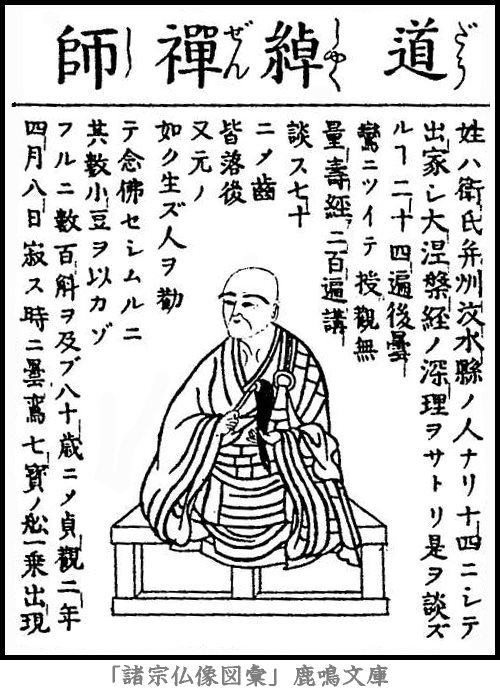 道綽禪師
だうしやくぜんし
姓ハ衛氏并州汶水縣ノ人ナリ十四ニシテ
出家シ大涅槃経ノ深理ヲサトリ是ヲ談ズ
ルヿ二十四遍後曇
鸞ニツイテ授觀無
量壽經二百遍講
談ス七十
ニメ齒
皆落後
又元ノ
如ク生ズ人ヲ勸
テ念佛セシムルニ
其數小豆ヲ以カゾ
フルニ數百斛ヲ及ブ八十歳ニメ貞觀二年
四月八日寂ス時ニ曇鸞七寳ノ舩一乗出現
「諸宗仏像図彙」鹿鳴文庫